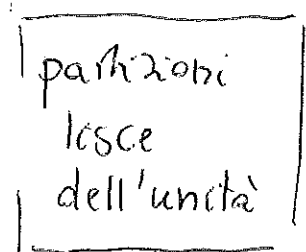 partizioni
lisce
dell'unità